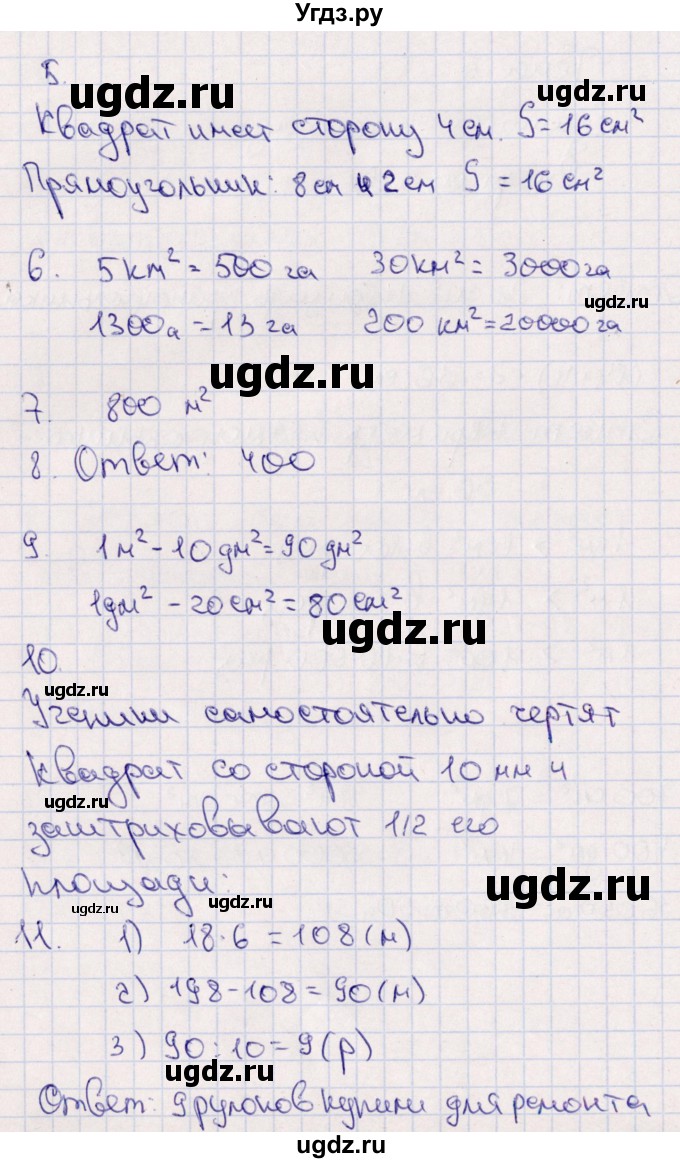 Угдз.ру
5.
ugdz.ru
ugdz.ru
Квадрат имеет сторону 4 см. S = 16 см²
Прямоугольник: 8 см и 2 см S = 16 см²
6. 5 км² = 500 га 30 км² = 3000 га
ugdz.ru
1300 а = 13 га 200 км² = 20000 га
ugdz.ru
7. 800 м²
8. Ответ: 400
9. 1 м² - 10 дм² = 90 дм²
1 дм² - 20 см² = 80 см²
ugdz.ru
10.
ugdz.ru
Ученики самостоятельно чертят
квадрат со стороной 10 мм и
ugdz.ru
заштриховывают 1/2 его
площади:
ugdz.ru
ugdz.ru
11. 1) 18·6 = 108 (м)
2) 198-108 = 90 (м)
3) 90:10 = 9 (р)
ugdz.ru
Ответ: 9 рулонов купили для ремонта
ugdz.ru